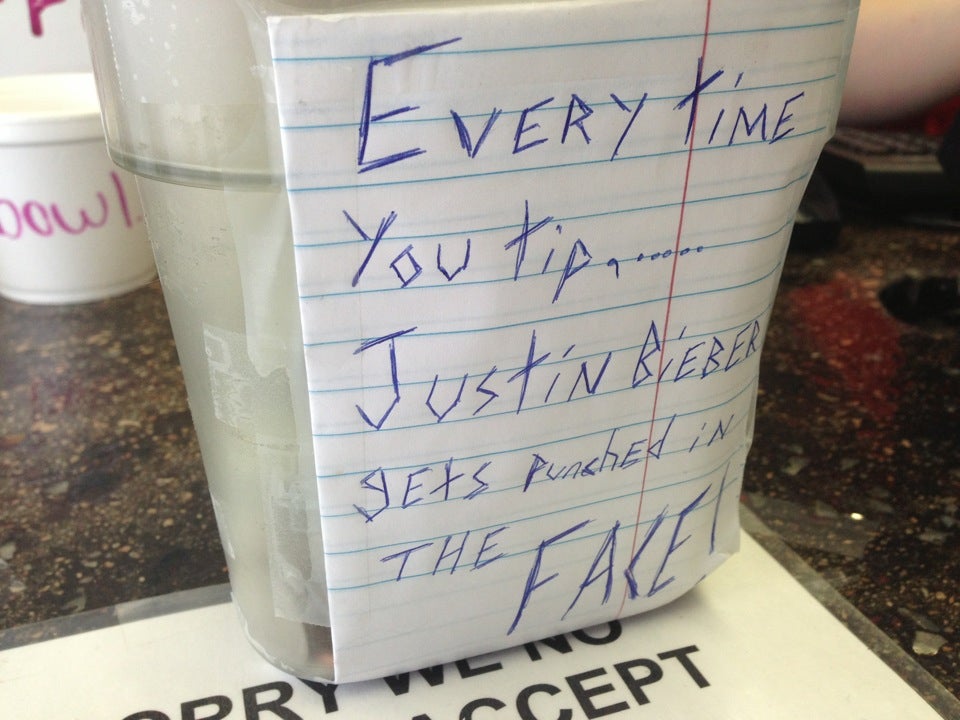 Every time
You tip.......
Justin Bieber
gets punched in
THE FACE!
bowl
ORRY WE NO
ACCEPT